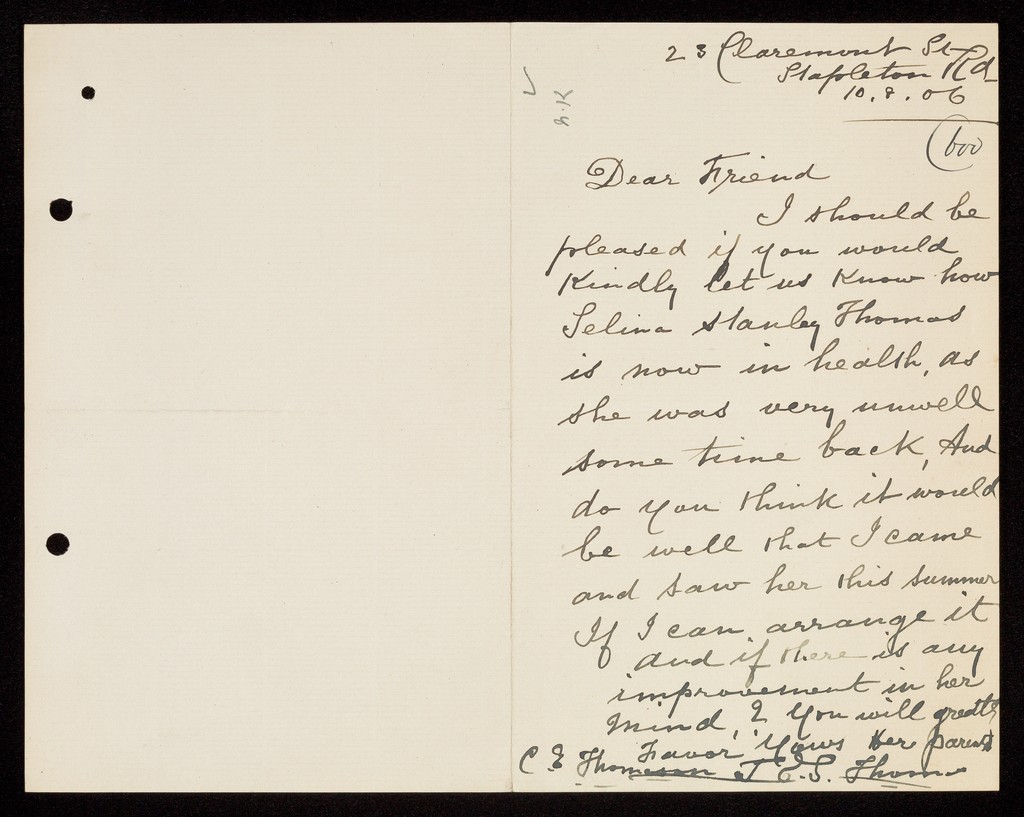 23 Claremont St
Stapleton Rd
10.8.06
Dear Friend
I should be
pleased if you would
Kindly let us Know how
Selina Stanley Thomas
is now in health, as
she was very unwell
some time back, And
do you think it would
be well that I came
and saw her this summer
If I can arrange it
and if there is any
improvement in her
mind, & You will greatly
Favor Yours Her parents
C E Thomas J E.S. Thomas